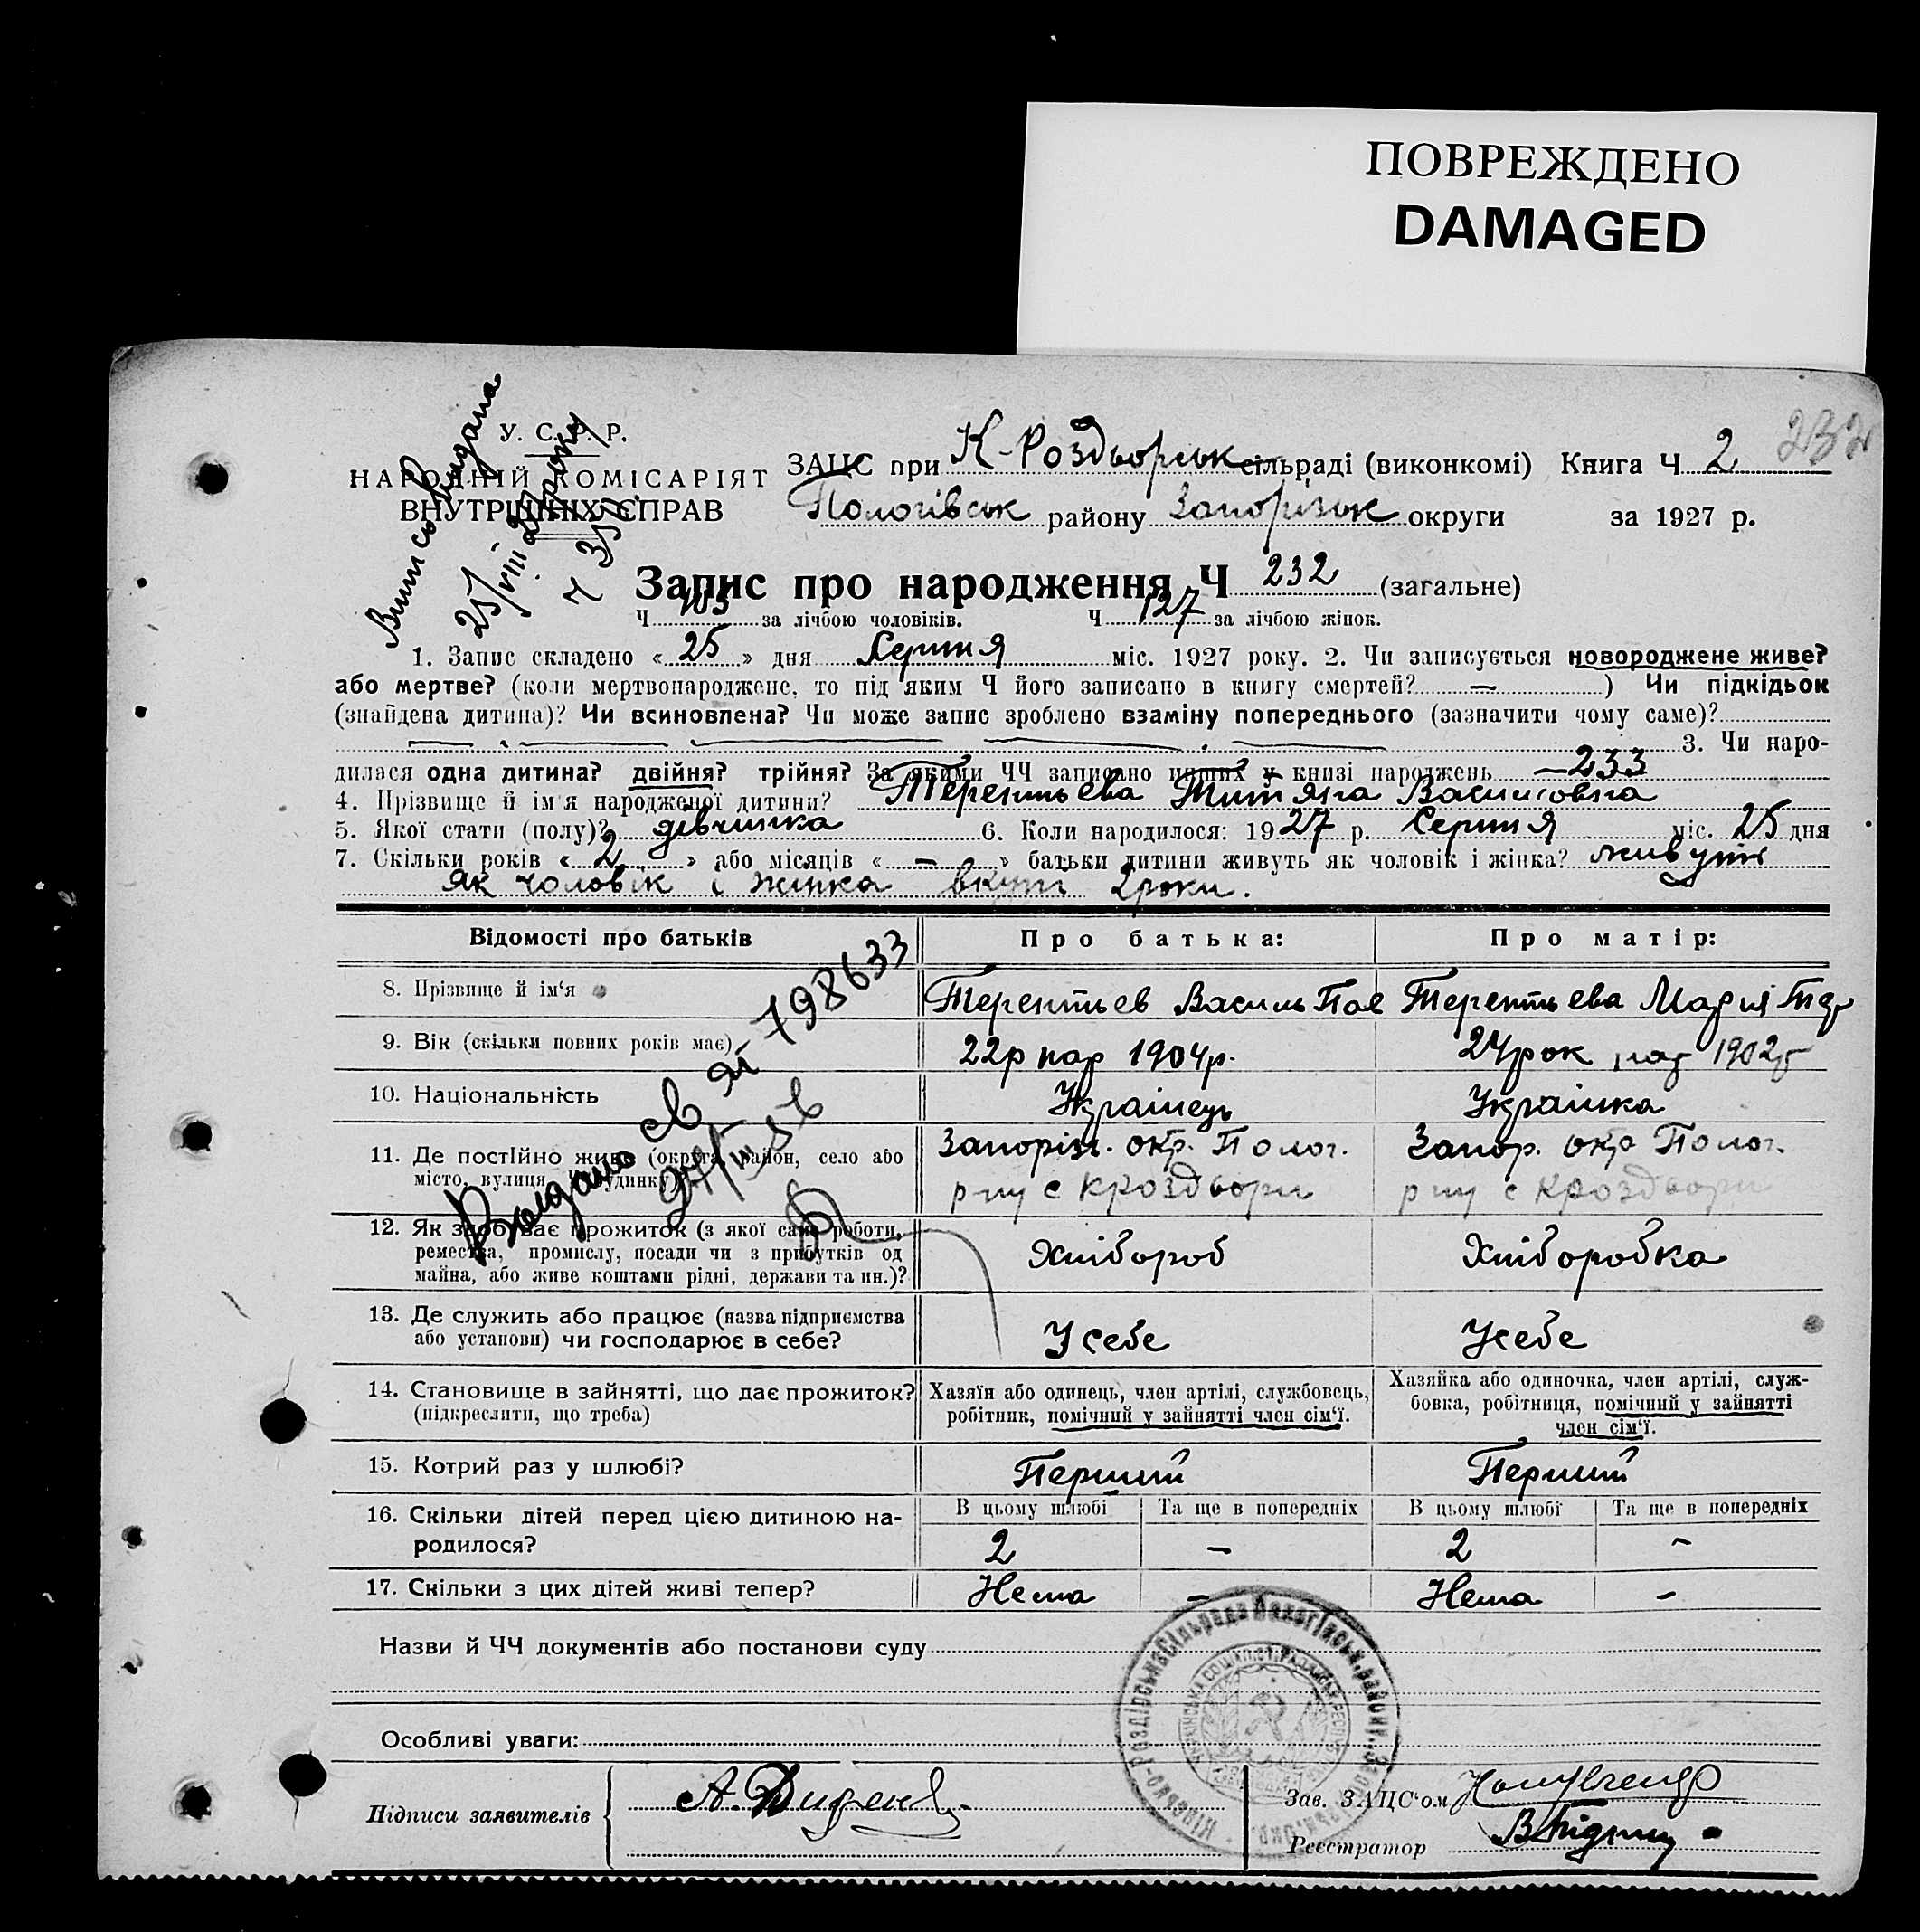 ПОВРЕЖДЕНО
DAMAGED
232
У. С. Р. Р.
НАРОДНІЙ КОМІСАРІЯТ
ВНУТРІШНІХ СПРАВ
Виписъ видана
ЗАЦС при К-Роздворськ сільраді (виконкомі) Книга Ч 2
Пологівськ району Запорізьк округи за 1927 р.
Запис про народження Ч 232 (загальне)
Ч 105 за лічбою чоловіків. Ч 127 за лічбою жінок.
1. Запис складено « 25 » дня Серпня міс. 1927 року. 2. Чи записується новороджене живе?
або мертве? (коли мертвонароджене, то під яким Ч його записано в книгу смертей? — ) Чи підкідьок
(знайдена дитина)? Чи всиновлена? Чи може запис зроблено взаміну попереднього (зазначити чому саме)?
3. Чи наро-
дилася одна дитина? двійня? трійня? За якими ЧЧ записано инших у книзі народжень —233
4. Прізвище й ім'я народженої дитини? Терентьева Титяна Василовна
5. Якої стати (полу)? дівчинка 6. Коли народилося: 1927 р. Серпня міс. 25 дня
7. Скільки років « 2 » або місяців « — » батьки дитини живуть як чоловік і жінка? живуть
як чоловік і жінка вкупі 2 роки.
Відомості про батьків Про батька: Про матір:
8. Прізвище й ім‘я Терентьев Василь Пав Терентьева Мария
9. Вік (скільки повних років має) 22р нар 1904р. 24 рок нар 1902р
10. Національність Українець Українка
11. Де постійно живе (округа, район, село або
місто, вулиця, будинку) Запоріз. окр. Полог. Запор. окр Полог.
р ну с Кроздвори р ну с Кроздвори
12. Як здобуває прожиток (з якої саме роботи,
ремества, промислу, посади чи з прибутків од
майна, або живе коштами рідні, держави та ин.)? Хлібороб Хліборобка
Видано св яг-798633
13. Де служить або працює (назва підприємства
або установи) чи господарює в себе? У себе У себе
14. Становище в зайнятті, що дає прожиток?
(підкреслити, що треба)
Хазяїн або одинець, член артілі, службовець,
робітник, помічний у зайнятті член сім‘ї.
Хазяйка або одиночка, член артілі, служ-
бовка, робітниця, помічний у зайнятті
член сім‘ї.
15. Котрий раз у шлюбі? Перший Перший
16. Скільки дітей перед цією дитиною на-
родилося?
В цьому шлюбі Та ще в попередніх В цьому шлюбі Та ще в попередніх
2 – 2 –
17. Скільки з цих дітей живі тепер? Нема – Нема –
Назви й ЧЧ документів або постанови суду
Особливі уваги:
Підписи заявителів
Зав. ЗАЦС‘ом
Реєстратор